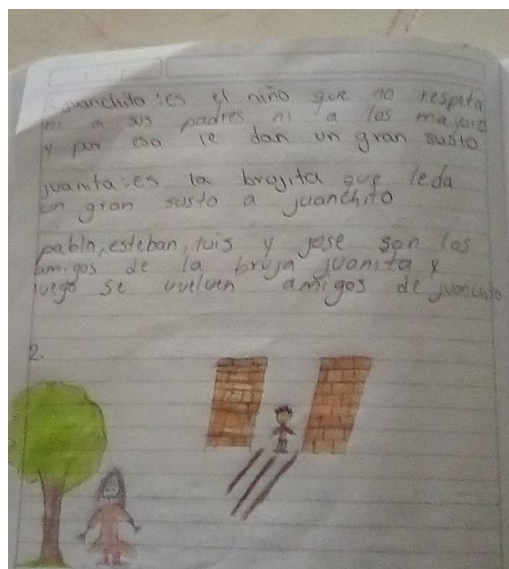 Juanchito: es el niño que no respeta
ni a sus padres ni a los mayores
y por eso le dan un gran susto
juanita: es la brujita que leda
un gran susto a juanchito
pablo, esteban, luis y jose son los
amigos de la bruja juanita y
luego se vuelven amigos de juanchito
2.